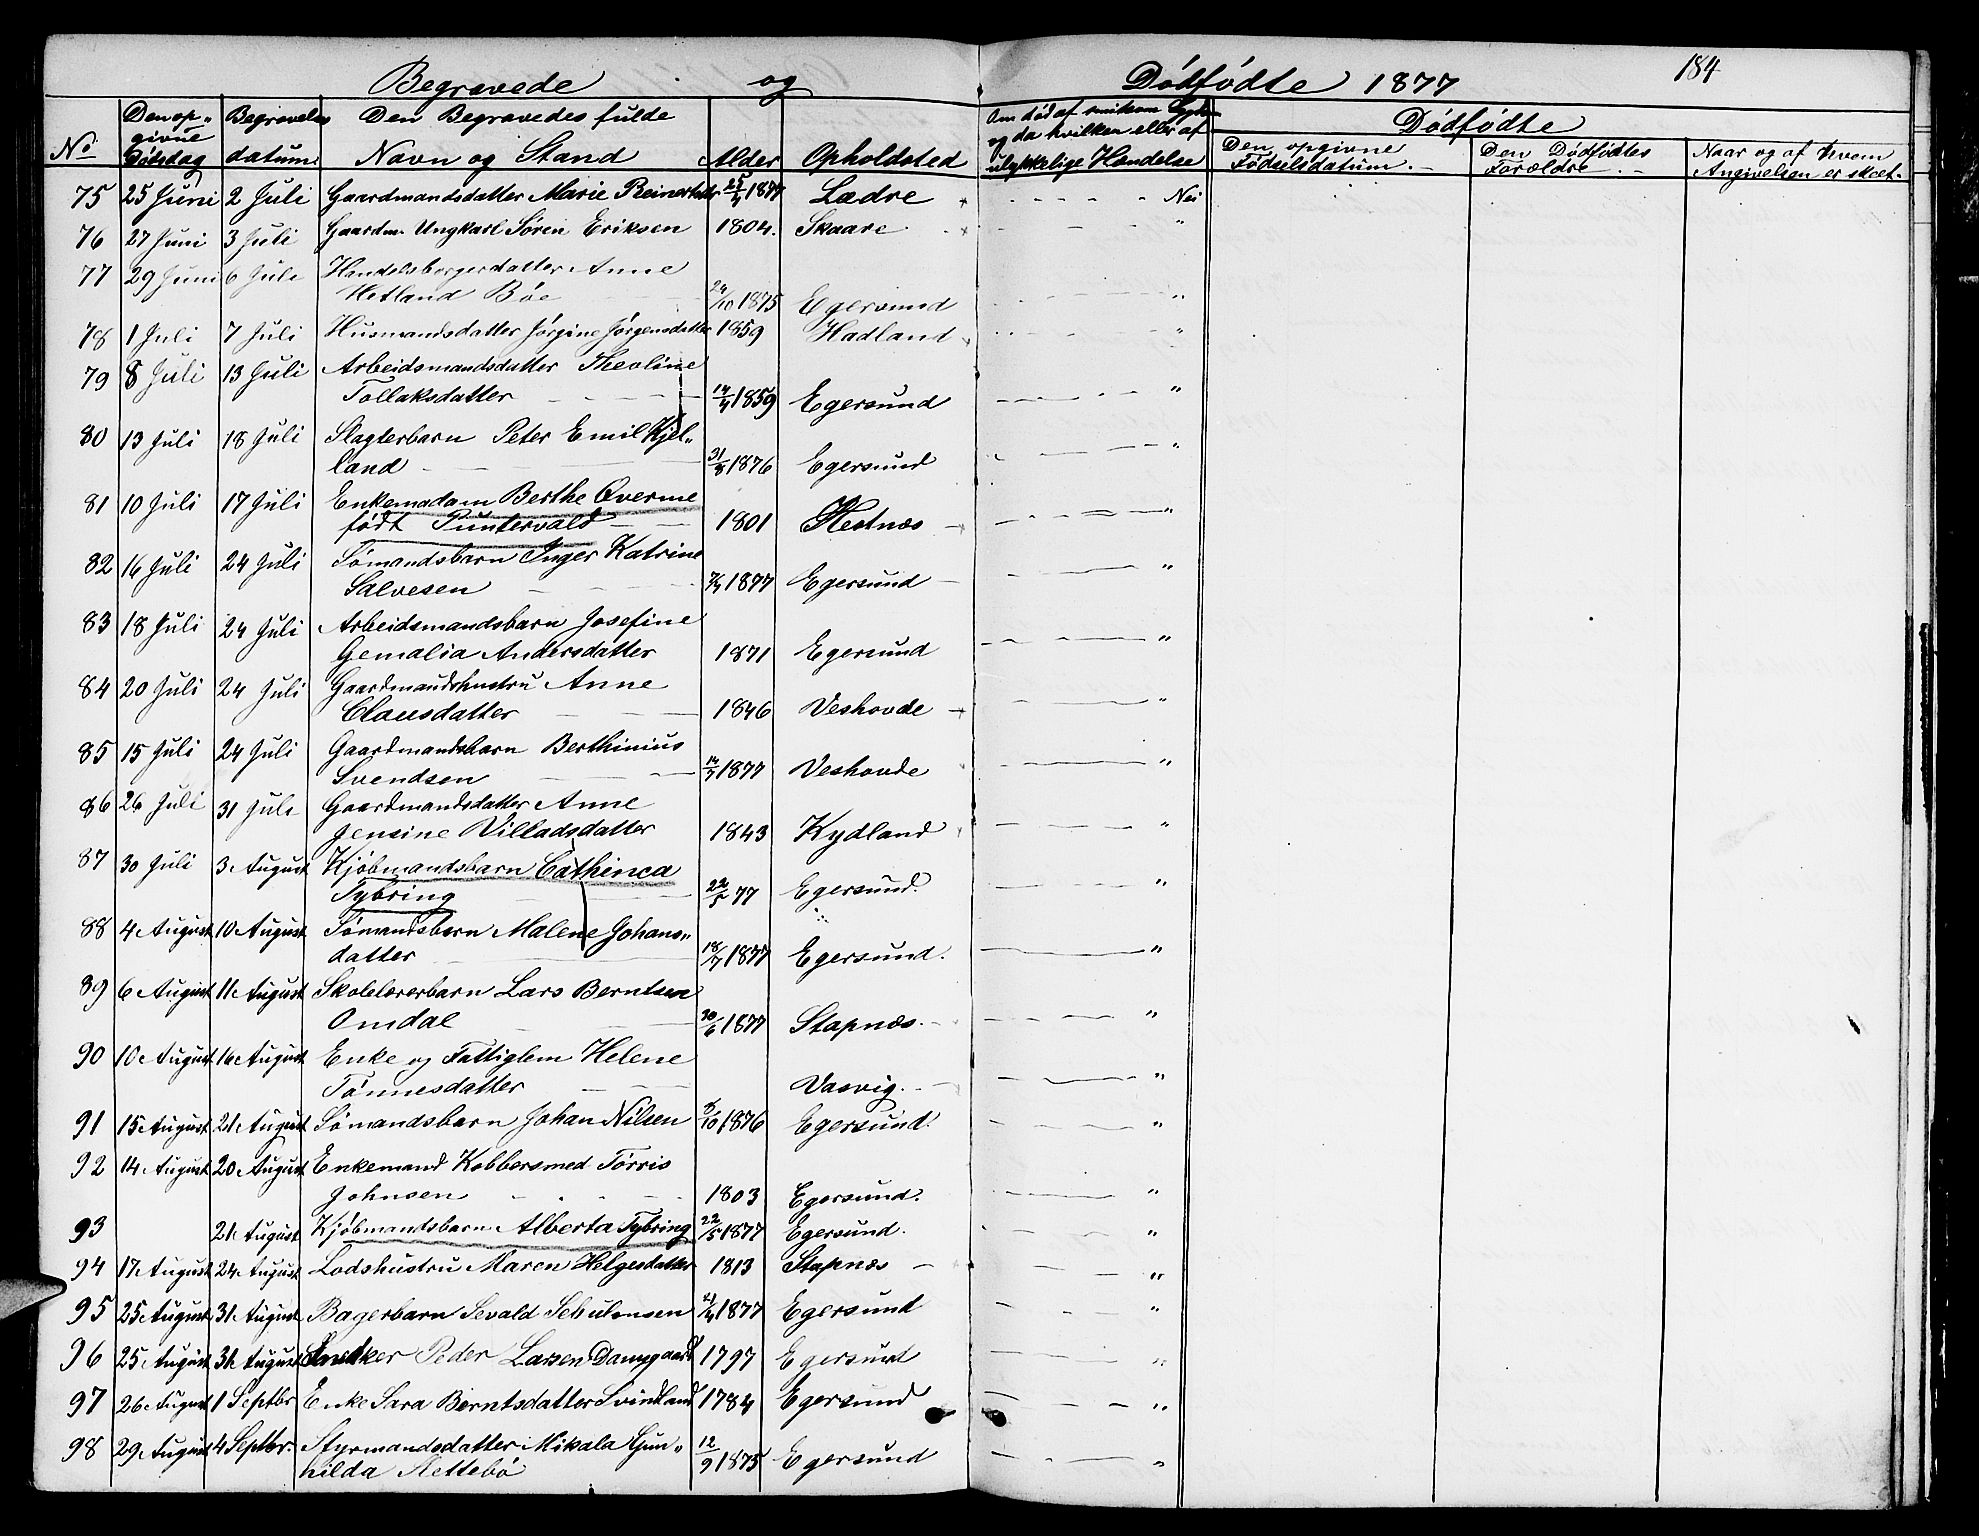 Begravede og Dödfödte 1877 184
No Den op= givne Dödsdag Begravelses datum Den Begravedes fulde Navn og Stand Alder Opholdsted Om död af smitsom Sygd. og da hvilken eller af ulykkelige Hændelse Dödfödte
Den opgivne Födselsdatum. Den Dödfödtes Forældre. Naar og af hvem Angivelsen er skeet.
75 25 Juni 2 Juli Gaardmandsdatter Marie Reinertsdtr 1877 Ladre Nei
76 27 Juni 3 Juli Gaardm. Ungkarl Sören Eriksen 1804. Skaare "
77 29 Juni 6 Juli Handelsborgerdatter Anne
Hetland Böe 24/10 1875 Egersund "
78 1 Juli 7 Juli Husmandsdatter Jörgine Jörgensdatter 1859 Hadland "
79 8 Juli 13 Juli Arbeidsmandsdatter Theoline
Tollaksdatter 14/4 1859 Egersund "
80 13 Juli 18 Juli Slagterbarn Peter Emil Kjel=
land 31/8 1876 Egersund "
81 10 Juli 17 Juli Enkemadam Berthe Qverme
född Puntervald 1801 Hestnæs "
82 16 Juli 24 Juli Sömandsbarn Inger Katrine
Salvesen 1877 Egersund "
83 18 Juli 24 Juli Arbeidsmandsbarn Josefine
Gemalia Andersdatter 1871 Egersund "
84 20 Juli 24 Juli Gaardmandshustru Anne
Clausdatter 1846 Veshovde "
85 15 Juli 24 Juli Gaardmandsbarn Berthinius
Svendsen 14/7 1877 Veshovde "
86 26 Juli 31 Juli Gaardmandsdatter Anne
Jensine Villadsdatter 1843 Kydland "
87 30 Juli 3 August Kjöbmandsbarn Cathinca
Tybring 22/5 77 Egersund. "
88 4 August 10 August Sömandsbarn Malene Johans=
datter 18/7 1877 Egersund. "
89 6 August 11 August Skolelærerbarn Lars Berntsen
Omdal 30/6 1877 Stapnæs. "
90 10 August 16 August Enke og Fattiglem Helene
Tönnesdatter Vasvig. "
91 15 August 21 August Sömandsbarn Johan Nilsen 8/10 1876 Egersund. "
92 14 August 20 August Enkemand Kobbersmed Törris
Johnsen 1803 Egersund. "
93 21 August Kjöbmandsbarn Alberta Tybring 22/5 1877 Egersund. "
94 17 August 24 August Lodshustru Maren Helgesdatter 1813 Stapnæs "
95 25 August 31 August Bagerbarn Sevald Schulensen 21/4 1877 Egersund "
96 25 August 31 August Peder Larsen Damsgaard 1797 Egersund "
97 26 August 1 Septbr Enke Sara Berntsdatter Svindland 1784 Egersund "
98 29 August 4 Septbr. Styrmandsdatter Mikala Gun=
hilda Slettebö 12/9 1875 Egersund "